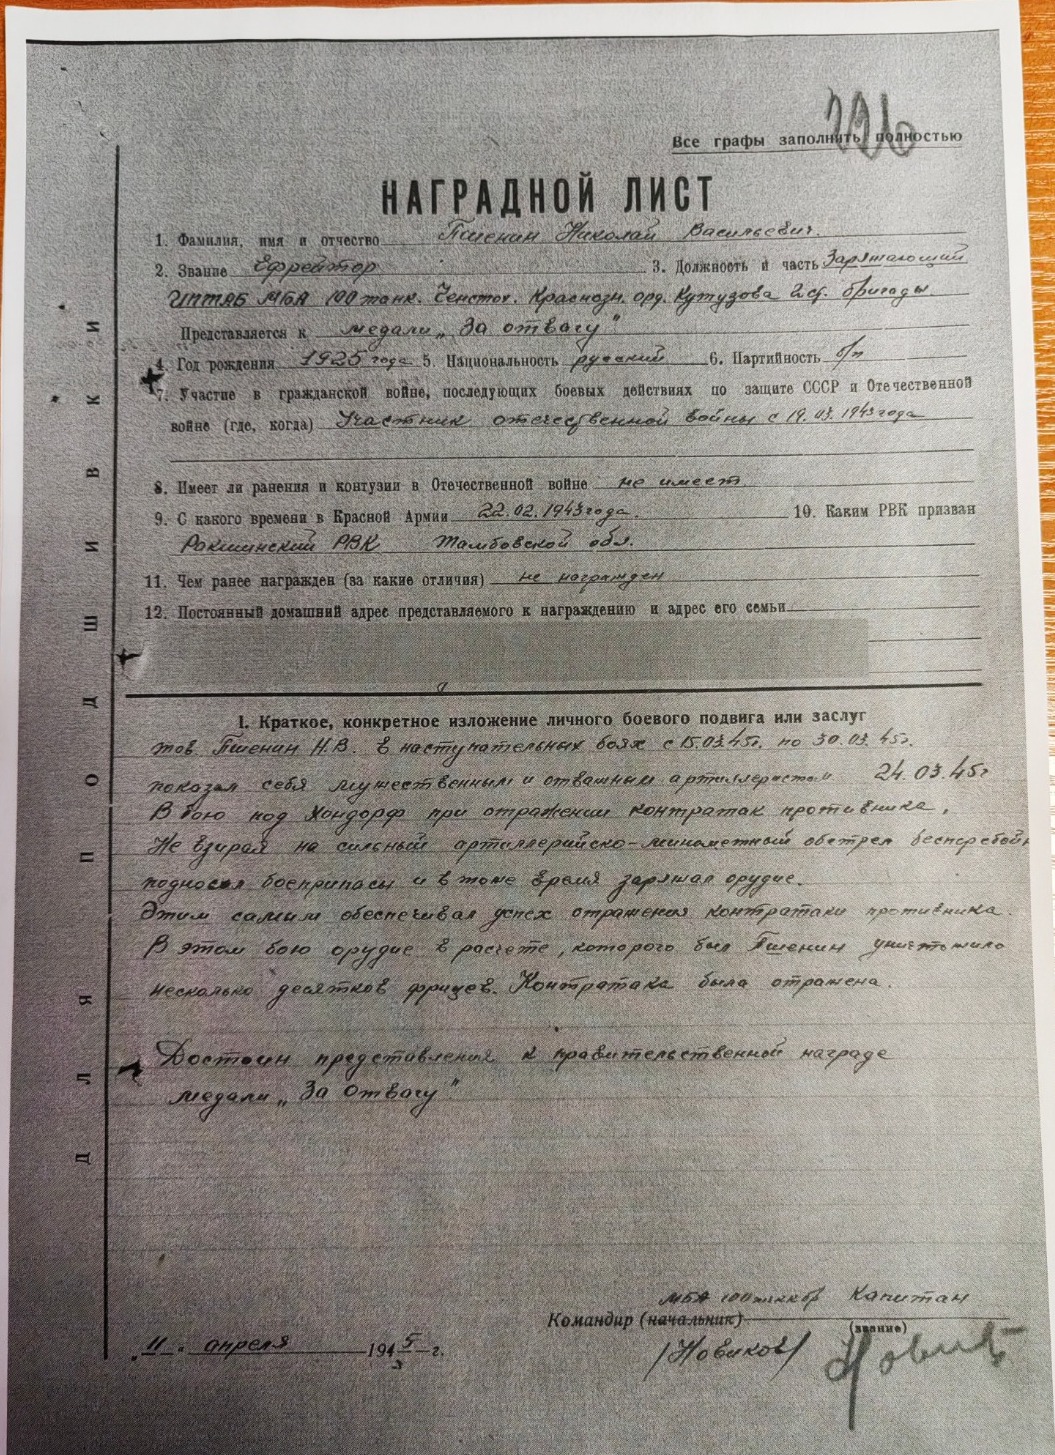 226
Все графы заполнить полностью
НАГРАДНОЙ ЛИСТ
1. Фамилия, имя и отчество Пшенин Николай Васильевич.
2. Звание Ефрейтор 3. Должность и часть Заряжающий
ИПТАБ МБА 100 танк. Ченстох. Краснозн. орд. Кутузова 2 ст. бригады.
Представляется к медали „За отвагу"
4. Год рождения 1925 года 5. Национальность русский 6. Партийность б/п
7. Участие в гражданской войне, последующих боевых действиях по защите СССР и Отечественной
войне (где, когда) Участник отечественной войны с 19.03.1943 года
8. Имеет ли ранения и контузии в Отечественной войне не имеет
9. С какого времени в Красной Армии 22.02.1943 года. 10. Каким РВК призван
Ракшинский РВК Тамбовской обл.
11. Чем ранее награжден (за какие отличия) не награжден
12. Постоянный домашний адрес представляемого к награждению и адрес его семьи
I. Краткое, конкретное изложение личного боевого подвига или заслуг
тов Пшенин Н.В. в наступательных боях с 15.03.45г. по 30.03.45г.
показал себя мужественным и отважным артиллеристом 24.03.45г
В бою под Хондорф при отражении контратак противника,
Не взирая на сильный артиллерийско-минометный обстрел бесперебойн
подносил боеприпасы и в тоже время заряжал орудие.
Этим самым обеспечивал успех отражения контратаки противника.
В этом бою орудие в расчете, которого был Пшенин уничтожило
несколько десятков фрицев. Контратака была отражена.
Достоин представления к правительственной награде
медали „За отвагу"
МБА 100 танкбр Капитан
Командир (начальник)
(звание)
„11" апреля 1945 г.
/Новиков/
Новик
ДЛЯ ПОДШИВКИ